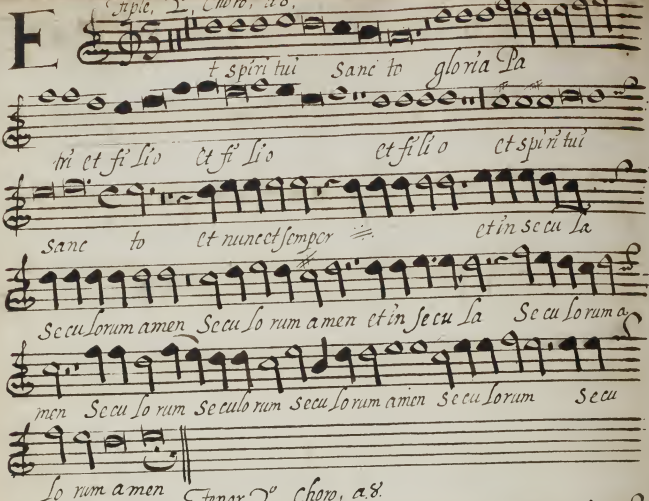 Tiple, 2º, Choro, a 8.
Et spiri tui Sanc to gloria Pa
tri et fi lio et fi lio et fili o et spiri tui
sanc to et nunc et semper et in se cu la
Se cu lorum amen Se cu lo rum amen et in se cu la Se cu lorum a
men Se cu lo rum Se cu lo rum se cu lorum amen se cu lorum Se cu
lo rum amen Tenor 2º Choro, a 8.